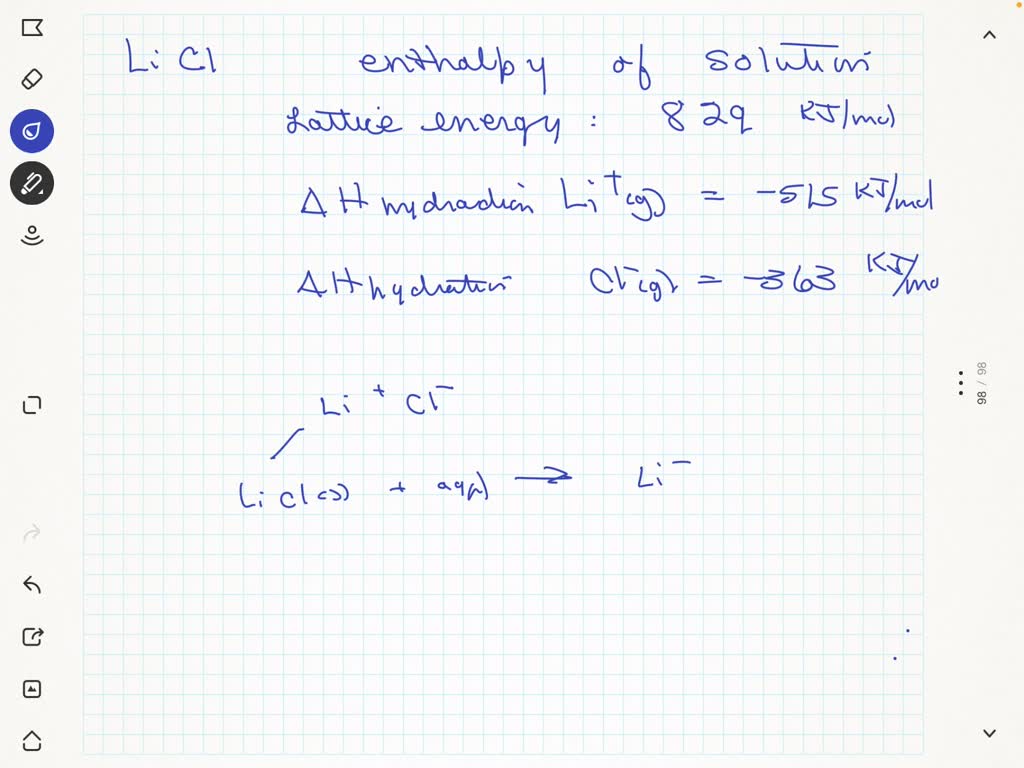 LiCl enthalpy of solution
Lattice energy: 829 KJ/mol
ΔH hydradion Li⁺(g) = -515 KJ/mol
ΔH hydration Cl⁻(g) = -363 KJ/mo
Li⁺ Cl⁻
LiCl(s) + aq → Li⁻
98 / 98